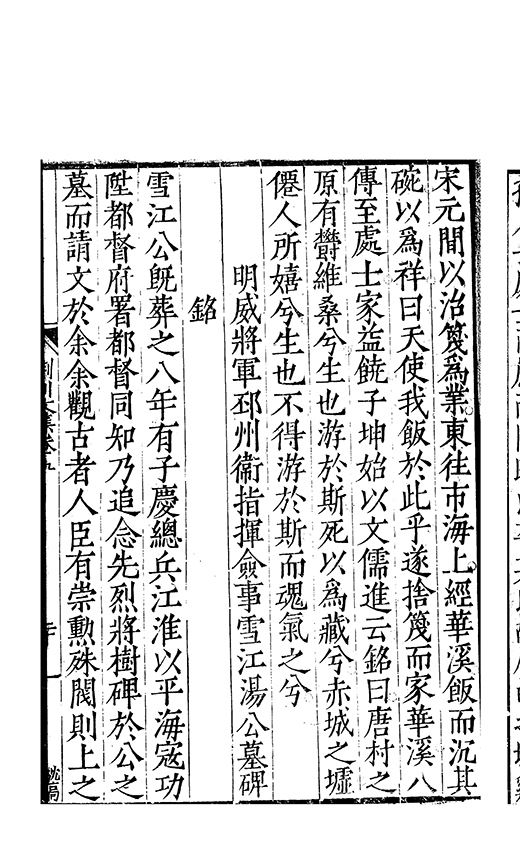 宋元間以治篾為業東往市海上經華溪飯而沉其
碗以為祥曰天使我飯於此乎遂捨篾而家華溪八
傳至處士家益饒子坤始以文儒進云銘曰唐村之
原有欝維桑兮生也游於斯死以為藏兮赤城之墟
僊人所嬉兮生也不得游於斯而魂氣之兮
明威將軍邳州衞指揮僉事雪江湯公墓碑
銘
雪江公旣葬之八年有子慶總兵江淮以平海寇功
陞都督府署都督同知乃追念先烈將樹碑於公之
墓而請文於余余觀古者人臣有崇勲殊閥則上之